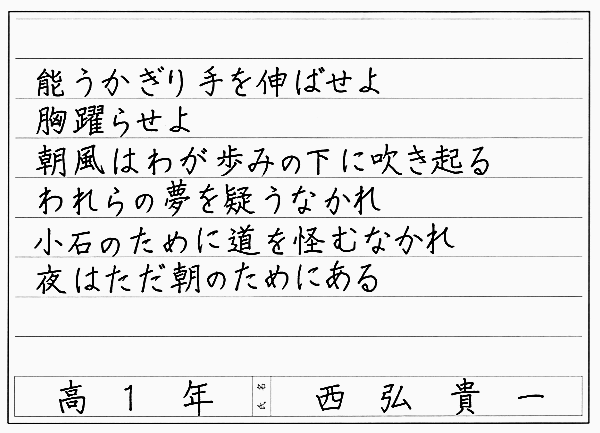 能うかぎり手を伸ばせよ
胸躍らせよ
朝風はわが歩みの下に吹き起る
われらの夢を疑うなかれ
小石のために道を怪むなかれ
夜はただ朝のためにある
高1年 氏名 西弘貴一